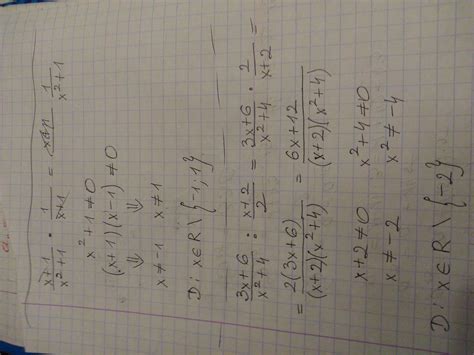 x+1/x²+1 · 1/x+1 = 1/x²+1
x²+1≠0
(x+1)(x-1)≠0
⇓ ⇓
x≠-1 x≠1
D: x∈R\{-1,1}
3x+6/x²+4 : x+2/2 = 3x+6/x²+4 · 2/x+2 =
= 2(3x+6)/(x+2)(x²+4) = 6x+12/(x+2)(x²+4)
x+2≠0 x²+4≠0
x≠-2 x²≠-4
D: x∈R\{-2}